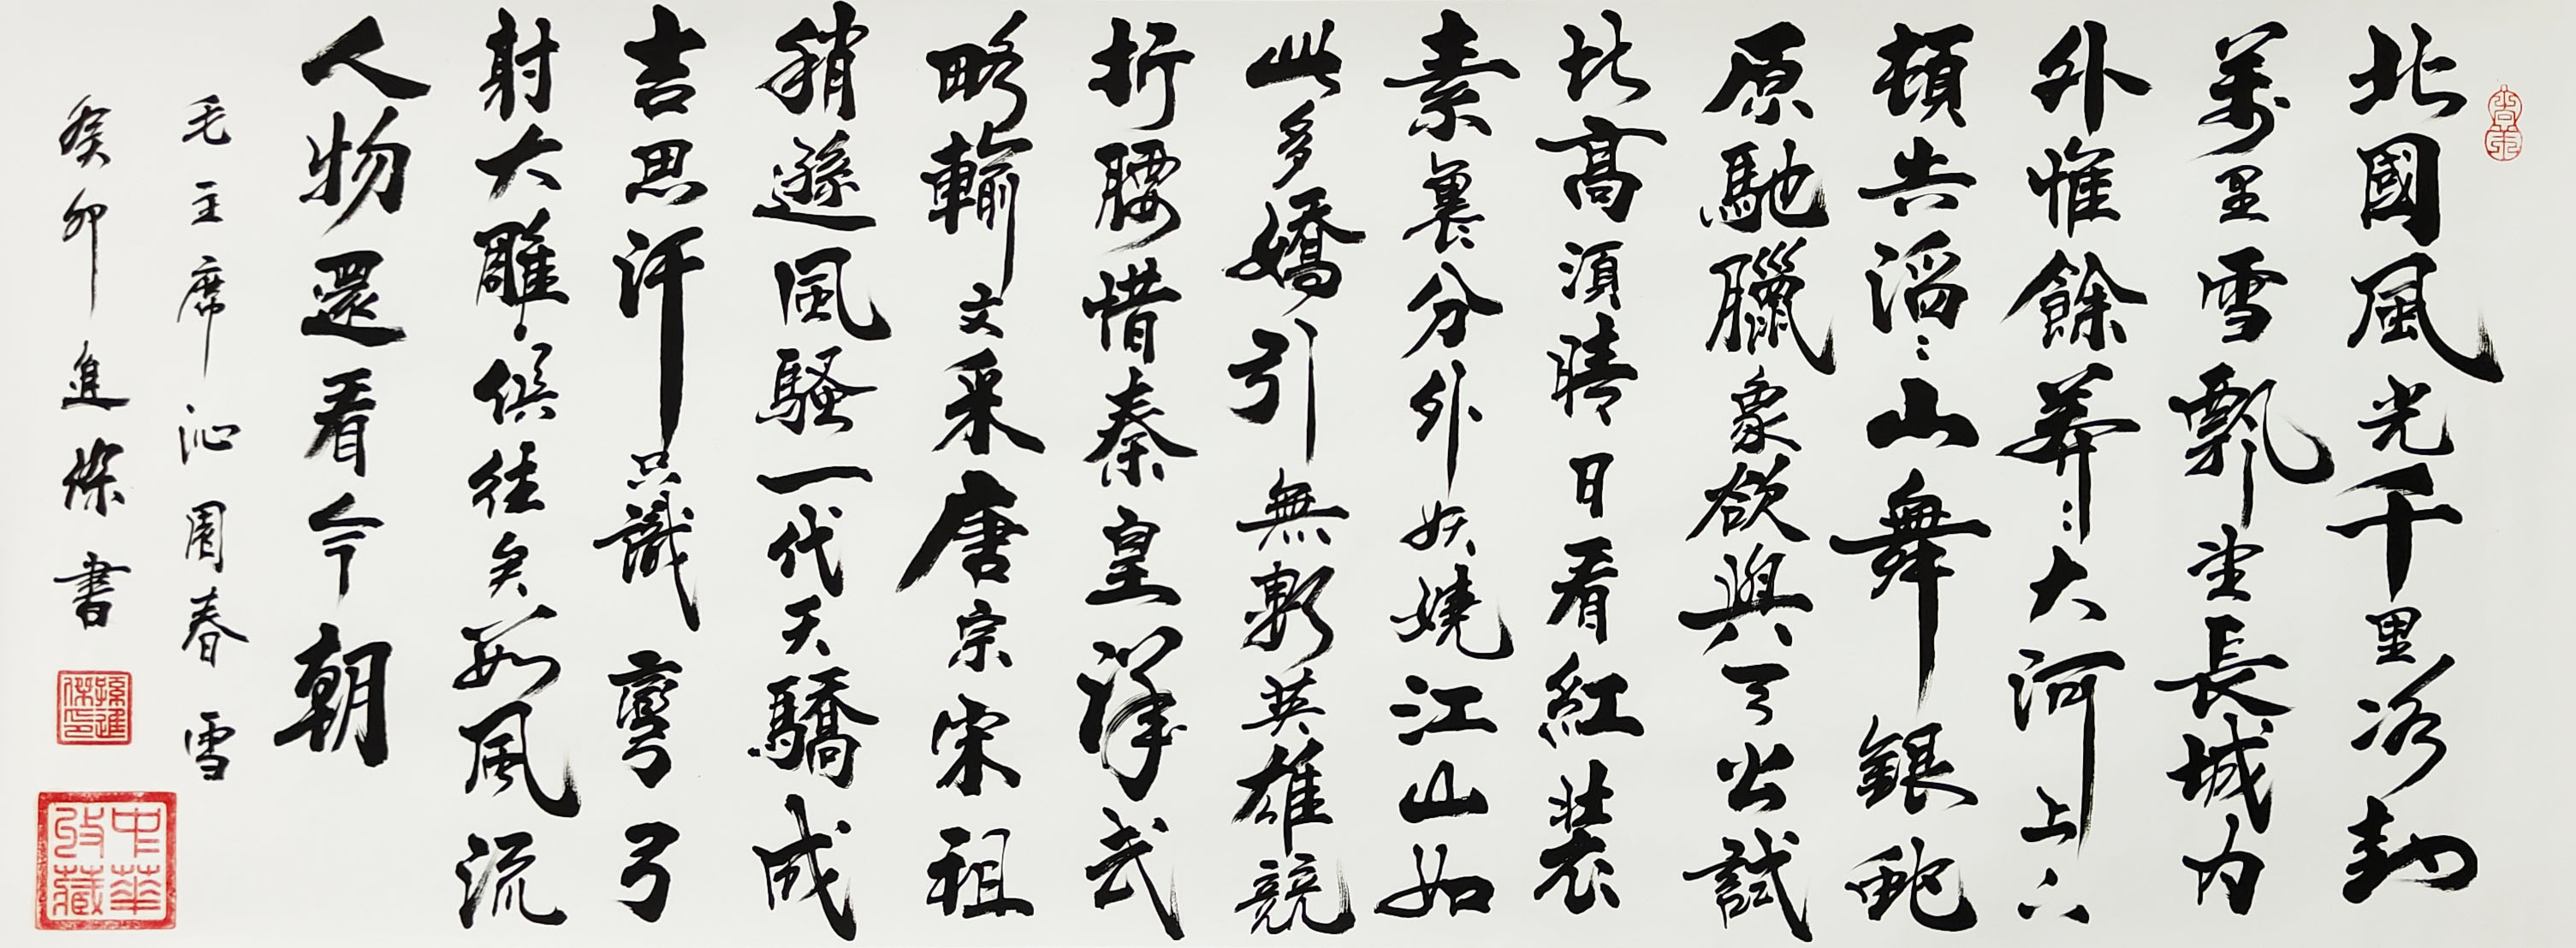 北國風光千里冰封
萬里雪飄望長城內
外惟餘莽〻大河上下
頓失滔〻山舞銀蛇
原馳臘象欲與天公試
比高須晴日看紅裝
素裹分外妖嬈江山如
此多嬌引無數英雄競
折腰惜秦皇漢武
略輸文采唐宗宋祖
稍遜風騷一代天驕成
吉思汗只識彎弓
射大雕俱往矣數風流
人物還看今朝
毛主席沁園春雪
癸卯進傑書
孫進傑印
中華收藏